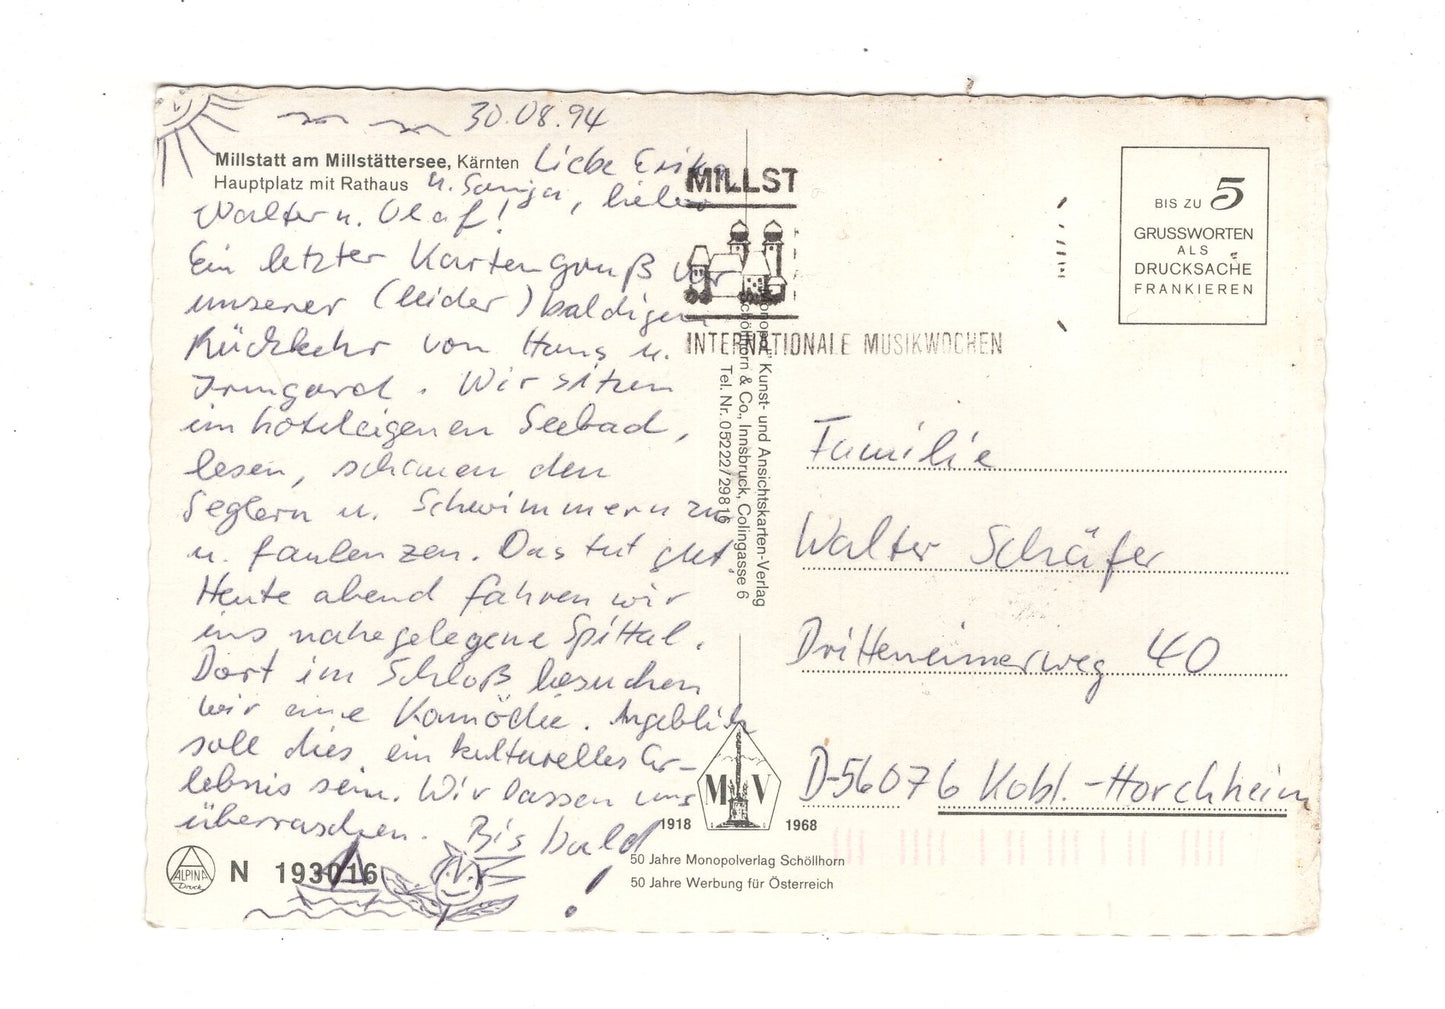 30.08.94
Millstatt am Millstättersee, Kärnten
Hauptplatz mit Rathaus
Liebe Erika
u. Sonja, lieber
Walter u. Olaf!
Ein letzter Kartengruß vor
unserer (leider) baldigen
Rückkehr von Hans u.
Irmgard. Wir sitzen
im hoteleigenen Seebad,
lesen, schauen den
Seglern u. Schwimmern zu
u. faulenzen. Das tut gut.
Heute abend fahren wir
ins nahegelegene Spittal.
Dort im Schloß besuchen
wir eine Komödie. Angeblich
soll dies ein kulturelles Er-
lebnis sein. Wir lassen uns
überraschen. Bis bald!
ALPINA
Druck
N 193016
MILLST
INTERNATIONALE MUSIKWOCHEN
"Monopol" Kunst- und Ansichtskarten-Verlag
Schöllhorn & Co., Innsbruck, Colingasse 6
Tel. Nr. 05222/29816
M V
1918 1968
50 Jahre Monopolverlag Schöllhorn
50 Jahre Werbung für Österreich
BIS ZU 5
GRUSSWORTEN
ALS
DRUCKSACHE
FRANKIEREN
Familie
Walter Schäfer
40
D-56076 Kobl.-Horchheim